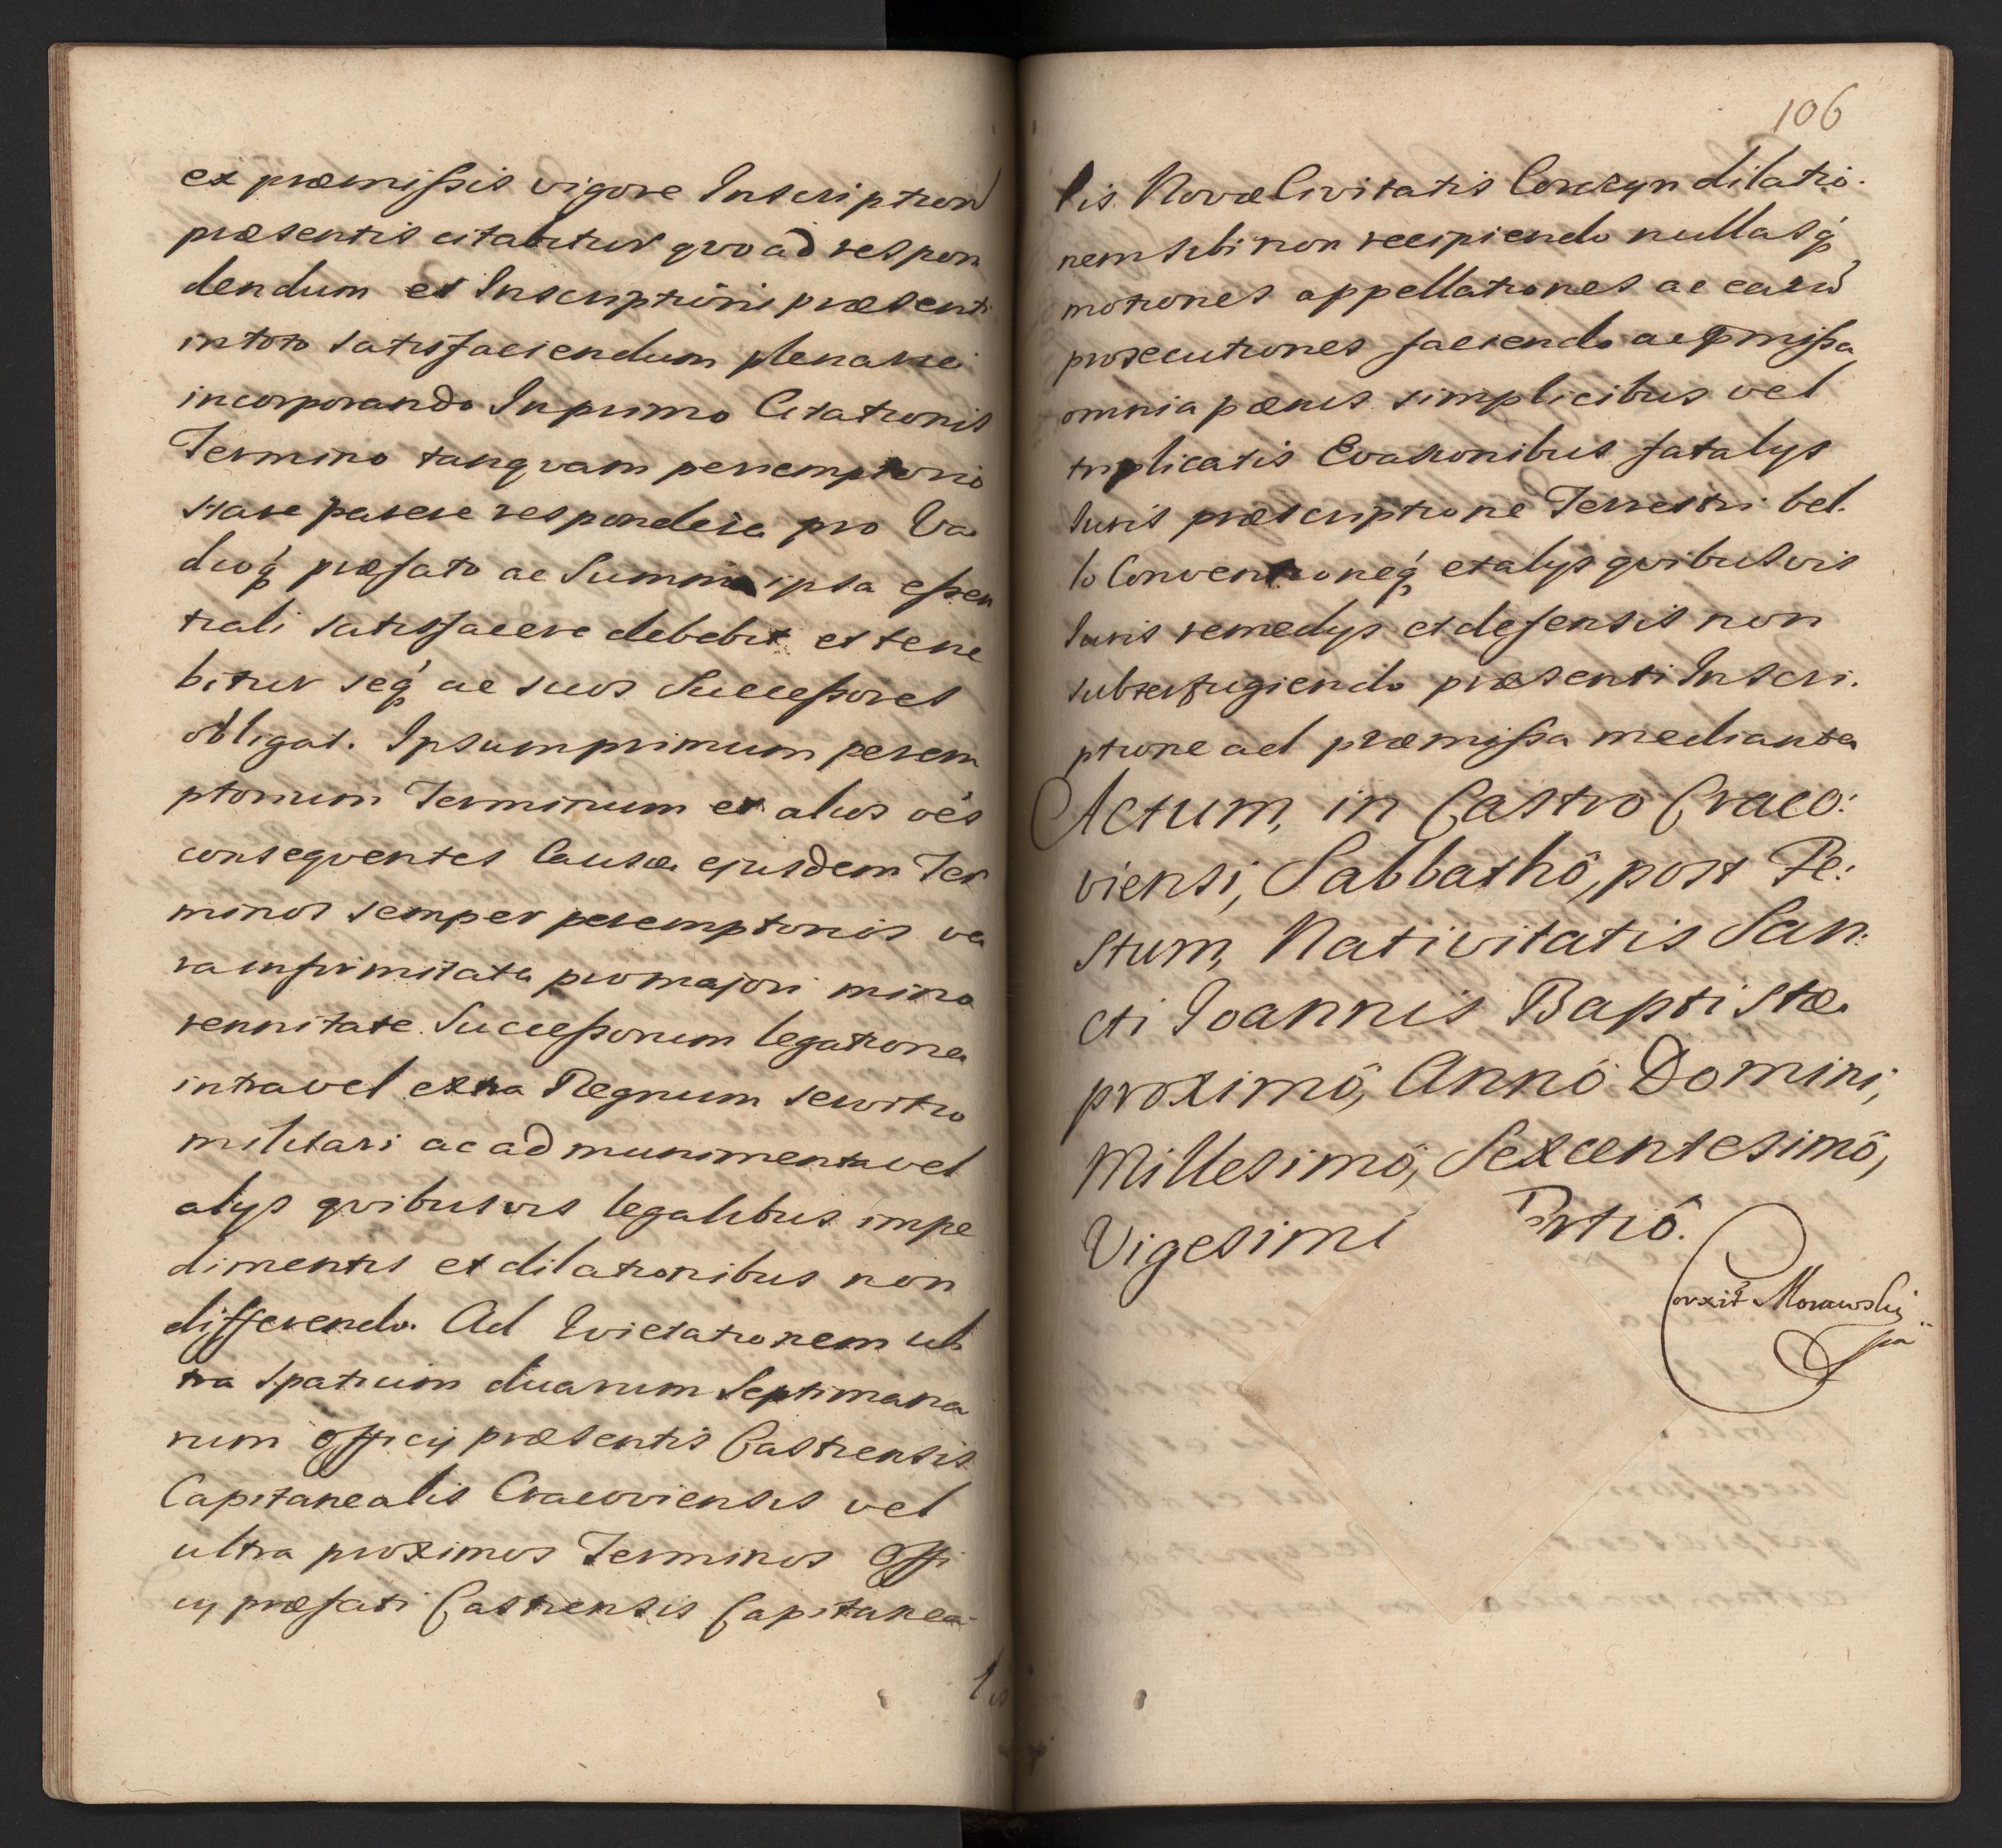 ex præmissis vigore Inscription
præsentis citabitur quo ad respon
dendum et Inscriptioni præsenti
in toto satisfaciendum plenarie
incorporando In primo Citationis
Termino tanquam peremptorio
stare parere respondere pro Va
dioq præfato ac Summa ipsa essen
tiali satisfacere debebit et tene
bitur seq ac suos Successores
obligat. Ipsum primum perem
ptorium Terminum et alios oés
consequentes Causæ ejusdem Ter
minos semper peremptorios ve
ra infirmitate pro majori mino
rennitate Successorum legatione
intra vel extra Regnum servitio
militari ac ad munimenta vel
alys quibusvis legalibus impe
dimentis et dilationibus non
differendo. Ad Evictationem ul
tra spatium duarum Septimana
rum Officij præsentis Castrensis
Capitanealis Cracoviensis vel
ultra proximos Terminos Offi
cij præfati Castrensis Capitanea
lis
106
lis Novæ Civitatis Corczyn dilatio.
nem sibi non recipiendo nullasq
motiones appellationes ac earū
prosecutiones faciendo ac pmissa
omnia pænis simplicibus vel
triplicatis Evasionibus fatalys
Iuris præscriptione Terrestri bel.
lo Conventioneq et alys quibusvis
Iuris remedys et defensis non
subterfugiendo præsenti Inscri.
ptione ad præmissa mediante
Actum, in Castro Craco:
viensi, Sabbathô, post Fe:
stum, Nativitatis San:
cti Ioannis Baptistæ
proximô, Annô Domini,
Millesimô, Sexcentesimô,
Vigesimi rtiô.
Corxit Morawski